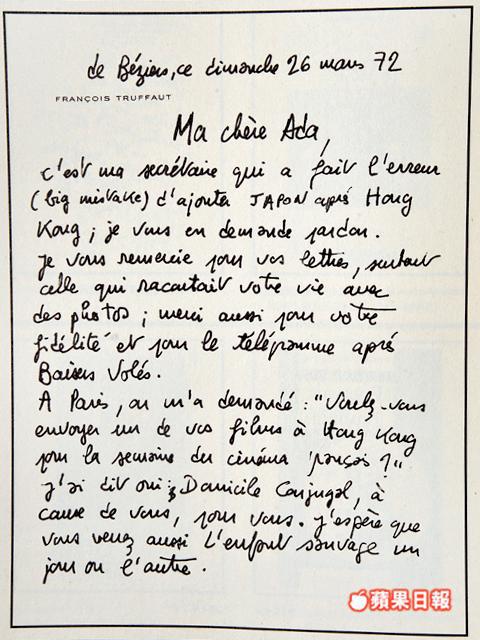 de Béziers, ce dimanche 26 mars 72
FRANÇOIS TRUFFAUT
Ma chère Ada,
c'est ma secrétaire qui a fait l'erreur
(big mistake) d'ajouter JAPON après Hong
Kong ; je vous en demande pardon.
Je vous remercie pour vos lettres, surtout
celle qui racontait votre vie avec
des photos ; merci aussi pour votre
fidélité et pour le télégramme après
Baisers Volés.
A Paris, on m'a demandé : "Voulez-vous
envoyer un de vos films à Hong Kong
pour la semaine du cinéma français ?"
J'ai dit oui ; Domicile Conjugal, à
cause de vous, pour vous. J'espère que
vous verrez aussi L'enfant sauvage un
jour ou l'autre.
蘋果日報